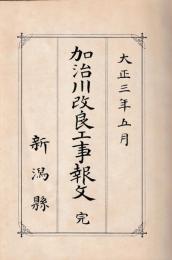 大正三年五月
加治川改良工事報文 完
新潟縣